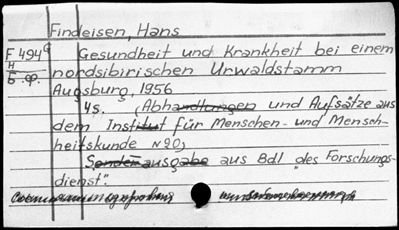 Findeisen, Hans
F 494G Gesundheit und Krankheit bei einem
H
б. ф. nordsibirischen Urwaldstamm
Augsburg, 1956
4s. (Abhandlungen und Aufsätze aus
dem Institut für Menschen- und Mensch-
heitskunde N20)
Sonderausgabe aus Bdl "des Forschungs-
dienst".